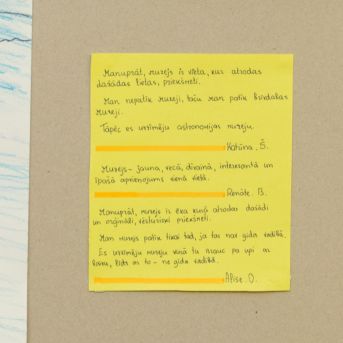 Manuprāt, muzejs ir vieta, kur atrodas
dažādas lietas, priekšmeti.
Man nepatīk muzeji, taču man patīk
muzeji.
Tāpēc es uzzīmēju astronomijas muzeju.
Katrīna, Š.
Muzejs - jauna, vecā, dīvainā, interesantā un
īpašā apvienojums vienā vietā.
Renāte. B.
Manuprāt, muzejs ir ēka kurā atrodas dažādi
un oriģināli, vēsturiski priekšmeti.
Man muzejs patīk tikai tad, ja tas nav gida vadībā.
Es uzzīmēju muzeju kurā tu pa upi ar
ne gida vadībā.
Alise. O.